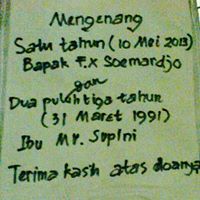 Mengenang
Satu tahun (10 Mei 2013)
Bapak F.X Soemardjo
dan
Dua puluh tiga tahun
(31 Maret 1991)
Ibu Mr. Supini
Terima kasih atas doanya